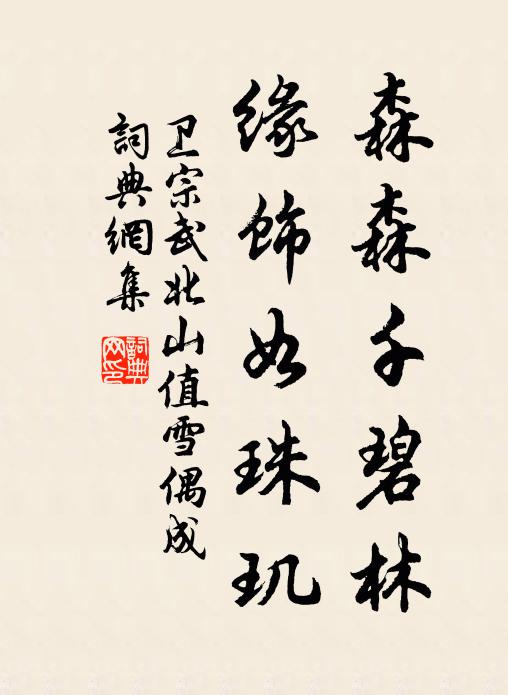 森森千碧林
缘饰如珠玑
卫宗武北山值雪偶成
詞典網集
詞典网印